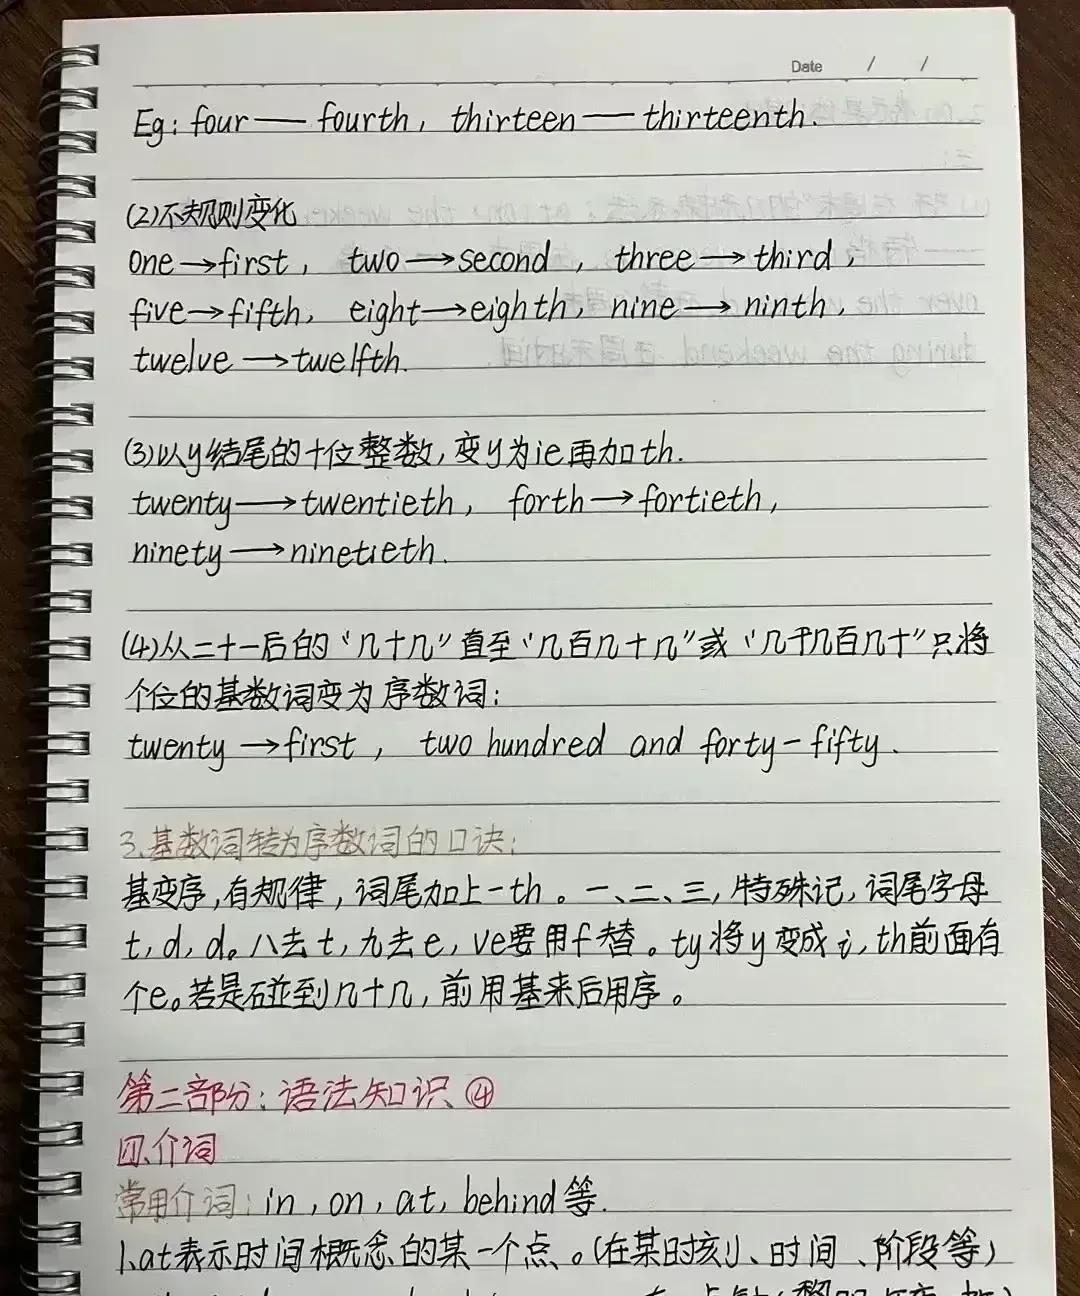 Date / /
Eg: four — fourth, thirteen — thirteenth.
(2)不规则变化
one→first, two→second, three→third,
five→fifth, eight→eighth, nine→ninth,
twelve→twelfth.
(3)以y结尾的十位整数,变y为ie再加th.
twenty→twentieth, forth→fortieth,
ninety→ninetieth.
(4)从二十一后的“几十几”直至“几百几十几”或“几千几百几十”只将
个位的基数词变为序数词:
twenty→first, two hundred and forty-fifty.
3.基数词转为序数词的口诀:
基变序,有规律,词尾加上-th。一、二、三,特殊记,词尾字母
t,d,d。八去t,九去e,ve要用f替。ty将y变成i,th前面有
个e。若是碰到几十几,前用基来后用序。
第二部分:语法知识④
四、介词
常用介词:in,on,at,behind等.
1.at表示时间概念的某一个点。(在某时刻、时间、阶段等)